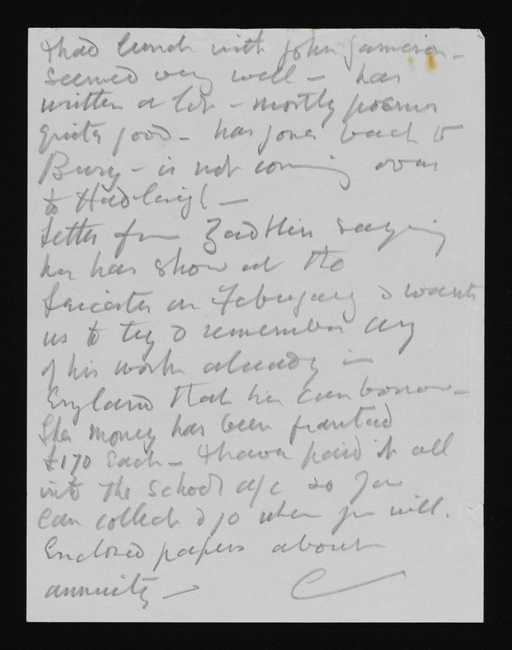 I had lunch with John Jameson -
seemed very well - has
written a lot - mostly poems
quite good - has gone back to
Bury - is not coming over
to Hadleigh -
Letter from Zadkin saying
he has show at the
Leicester in February & wants
us to try & remember any
of his work already in
England that he can borrow -
The money has been granted
£170 each - I have paid it all
into the School a/c so you
can collect & go when you will.
Enclosed papers about
annuity - C